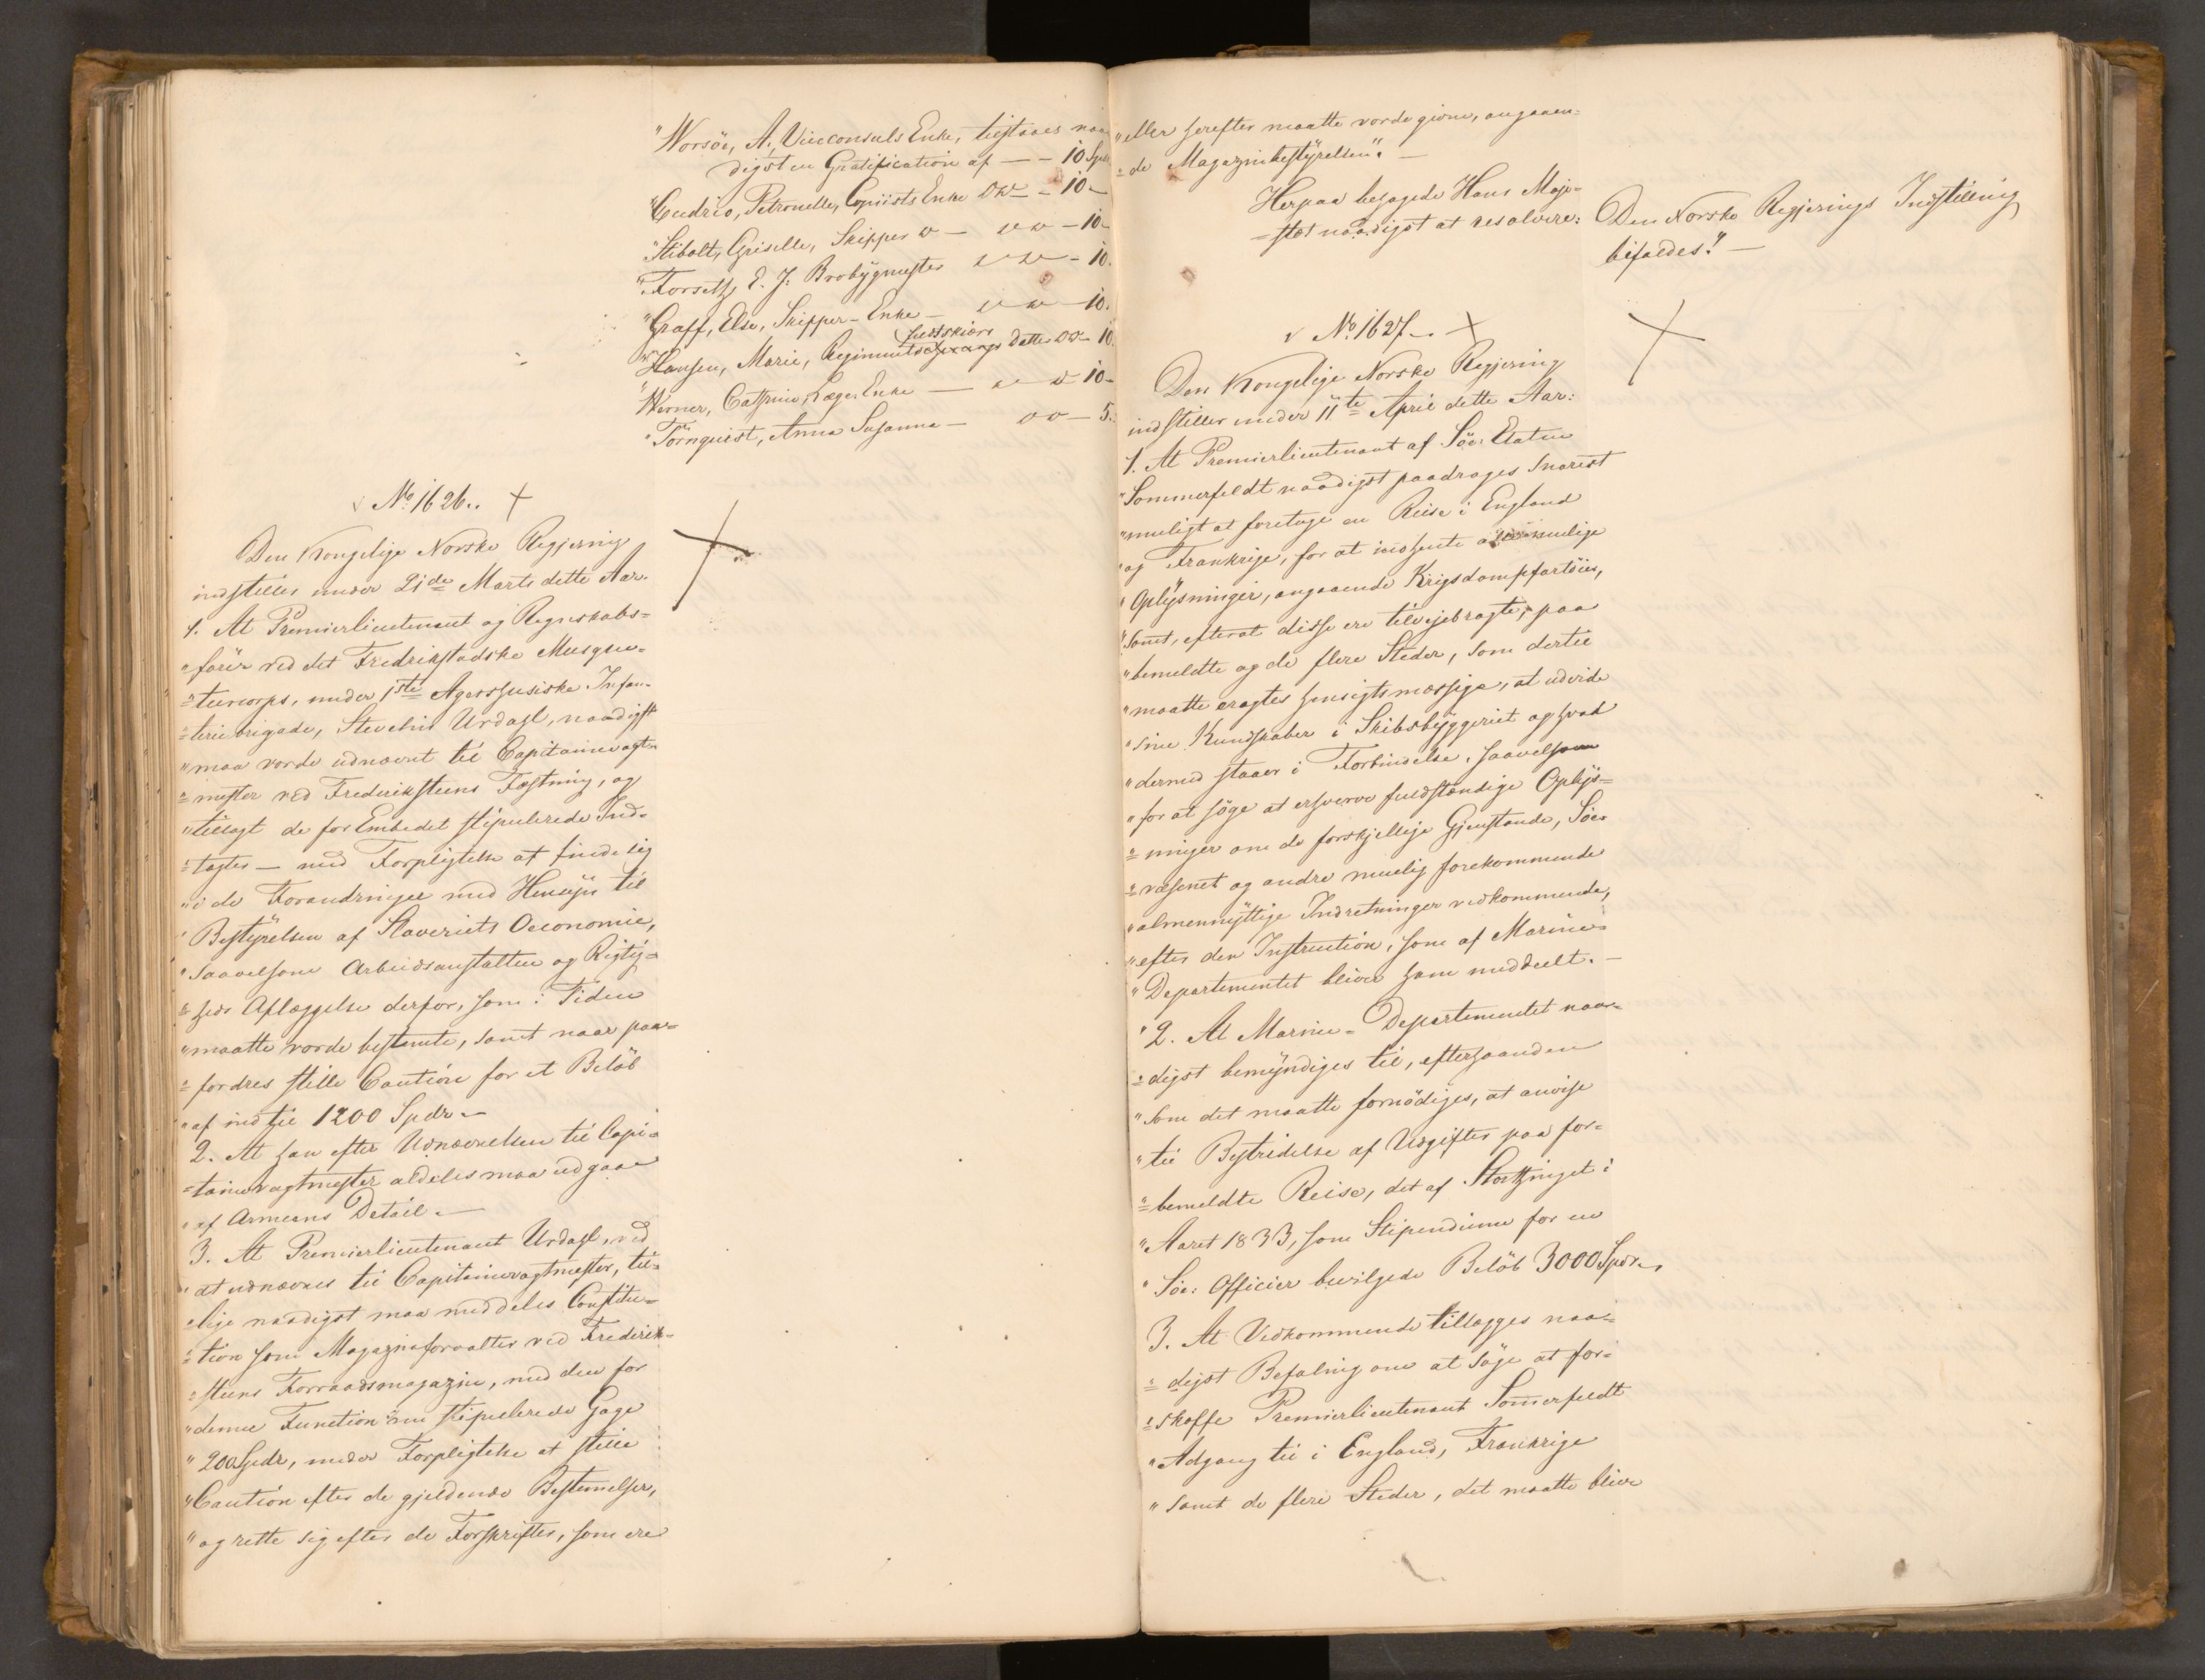 "Worsöe, A, Viceconsuls Enke, tilstaaes naa-
digst en Gratification af — – 10 Spd
"Cudrio, Petronelle, Copiists Enke do – 10 –
"Stibolt, Griselle, Skipper do — do – 10 –
"Forseth, E. J. Brobygmester do – 10.
"Graff, Else, Skipper-Enke – do – 10.
"Hansen, Marie, Regiments Feldtskiærs Datter do – 10.
"Werner, Cathrine, Læges Enke — do – 10 –
"Törnquist, Anna Susanna — do – 5.
No 1626.. +
Den Kongelige Norske Regjering
indstiller under 21de Marts dette Aar.
1. At Premierlieutenant og Regnskabs=
"förer ved det Fredrikstadske Musque-
=teercorps, under 1ste Agershusiske Infan-
=teriebrigade, Urdahl, naadigst
"maa vorde udnævnt til Capitainevagt-
=mester ved Frederiksteens Fæstning, og
"tillagt de for Embedet stipulerede Ind-
=tægter — med Forpligtelse at finde sig
"i de Forandringer med Hensyn til
"Bestyrelsen af Slaveriets Oeconomie,
"saavelsom Arbeidsanstalten og Rigtig=
=heds Aflæggelse derfor, som i Tiden
"maatte vorde bestemte, samt naar paa=
=fordres stille Caution for et Belöb
"af indtil 1200 Spdr. –
2. At han efter Udnævnelsen til Capi=
=tainevagtmester aldeles maa udgaae
"af Armeens Detail. —
3. At Premierlieutenant Urdahl, ved
"at udnævnes til Capitainevagtmester, til=
=lige naadigst maa meddeles Constitu=
=tion som Magazinforvalter ved Frederik=
=steens Forraadsmagazin, med den for
"denne Function nu stipulerede Gage
"200 Spdr, under Forpligtelse at stille
"Caution efter de gjeldende Bestemelser,
"og rette sig efter de Forskrifter, som ere
"eller herefter maatte vorde givne, angaaen=
=de Magazinbestyrelsen". —
Herpaa behagede Hans Maje=
=stæt naadigst at resolvere: Den Norske Regjerings Indstilling
bifaldes". —
No 1627. – +
Den Kongelige Norske Regjering
indstiller under 11te April dette Aar:
1. At Premierlieutenant af Söe-Etaten
"Sommerfeldt naadigst paadrages snarest
"muligt at foretage en Reise i England
"og Frankrige, for at indhente alle muelige
"Oplysninger, angaaende Krigsdampfartöier,
"samt, efterat disse ere tilvejebragte, paa
"bemeldte og de flere Steder, som dertil
"maatte eragtes hensigtsmæssige, at udvide
"sine Kundskaber i Skibsbyggeriet og hvad
"dermed staaer i Forbindelse, saavelsom
"for at söge at erhverve fuldstændige Oplys=
=ninger om de forskjellige Gjenstande, Söe-
=væsenet og andre muelig forekommende
"almennyttige Indretninger vedkommende,
"efter den Instruction, som af Marine=
"Departementet bliver ham meddeelt. —
"2. At Marine=Departementet naa=
=digst bemyndiges til, efterhaanden
"som det maatte fornödiges, at anvise
"til Bestridelse af Udgifter paa for=
=bemeldte Reise, det af Storthinget i
"Aaret 1833, som Stipendium for en
"Söe: Officier bevilgede Belöb 3000 Spdr. –
3. At Vedkommende tillægges naa=
=digst Befaling om at söge at for=
=skaffe Premierlieutenant Somerfeldt
"Adgang til i England, Frankrige
"samt de flere Steder, det maatte blive